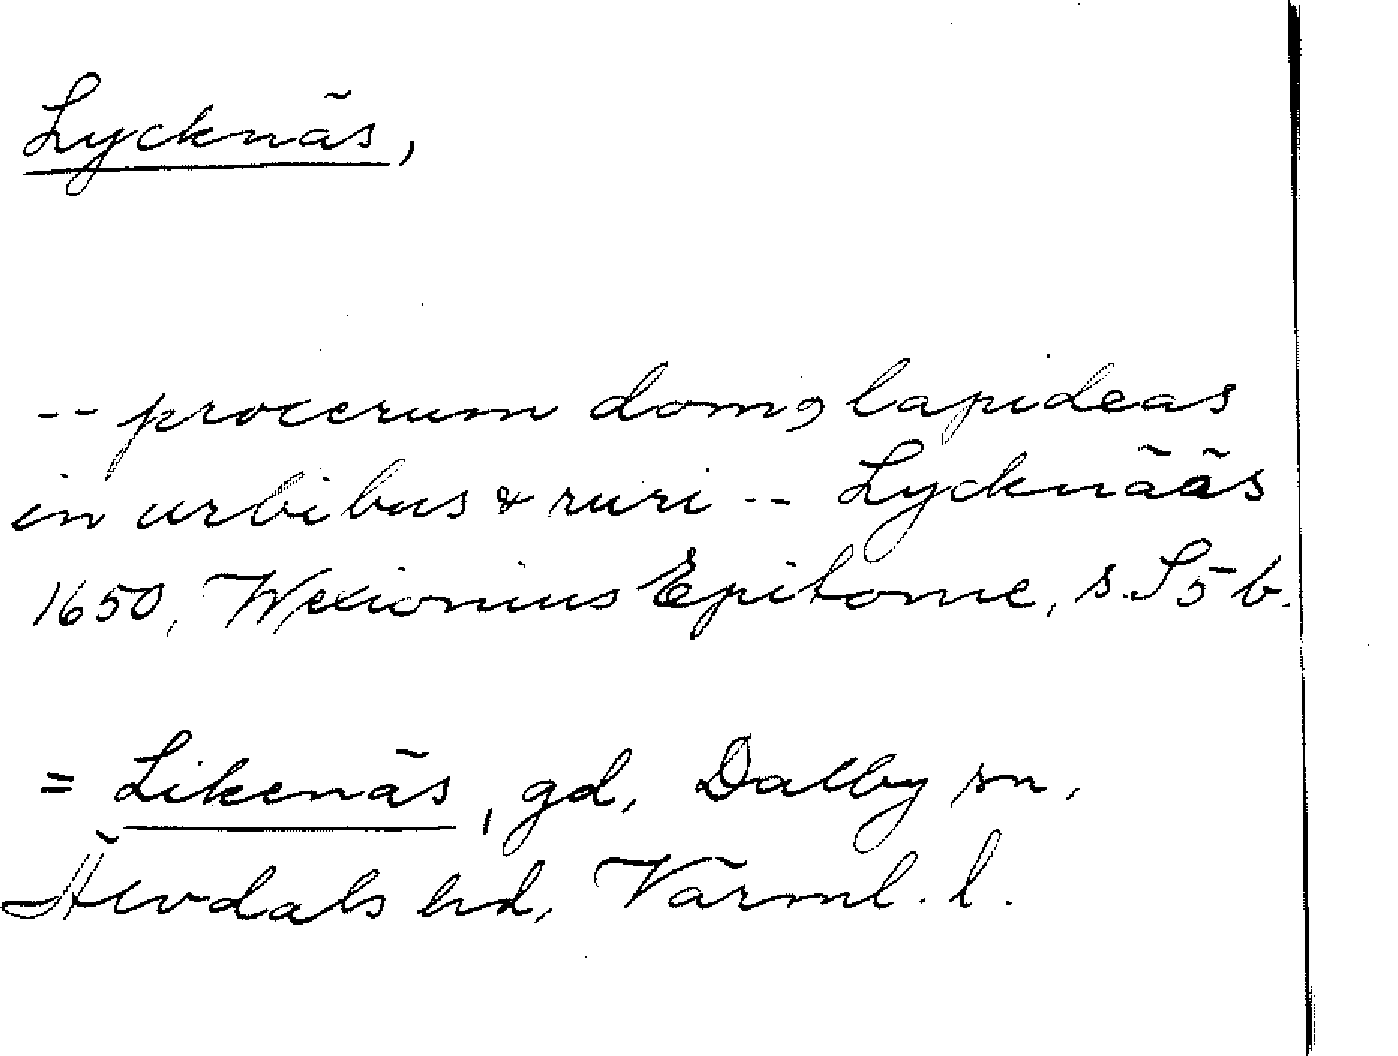 Lycknäs,
-- procerum domꝯ lapideas
in urbibus & ruri -- Lycknääs
1650, Wexionius Epitome, s. S5 b.
= Likenäs, gd, Dalby sn,
Älvdals hd, Värml. l.